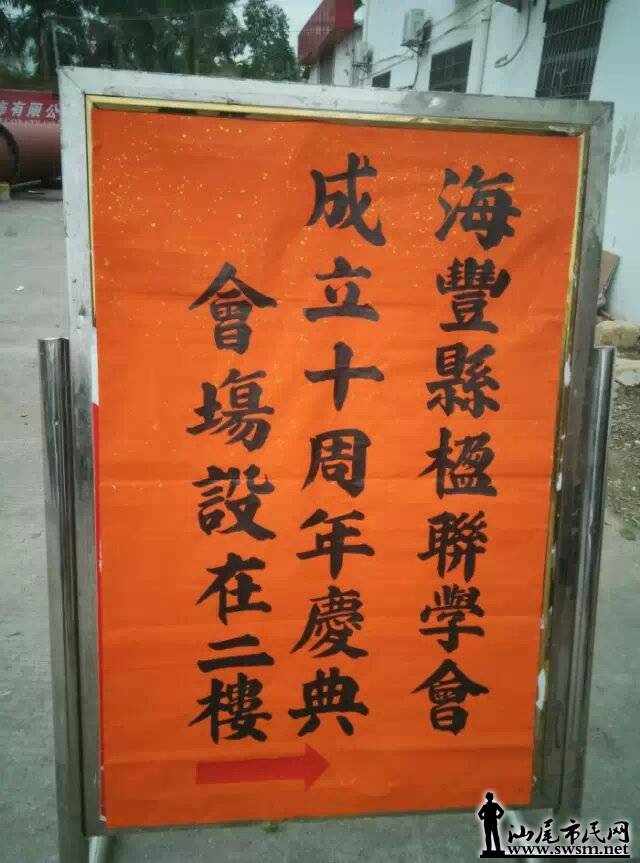 海豐縣楹聯學會
成立十周年慶典
會場設在二樓
有限公
汕尾市民网
www.swsm.net